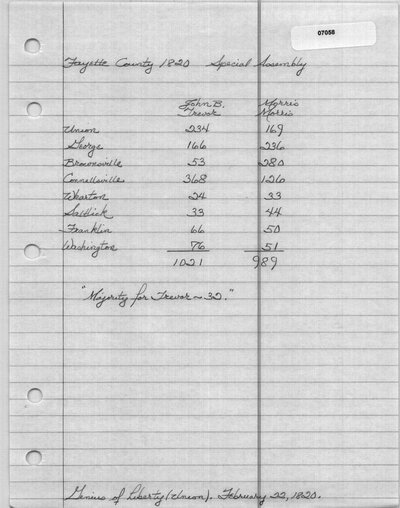 07058
Fayette County 1820 Special Assembly
John B. Morris
Trevor Morris
Union 234 169
George 166 236
Brownsville 53 280
Connellsville 368 126
Wharton 24 33
Saltlick 33 44
Franklin 66 50
Washington 76 51
1021 989
"Majority for Trevor ~ 32."
Genius of Liberty (Union). February 22, 1820.